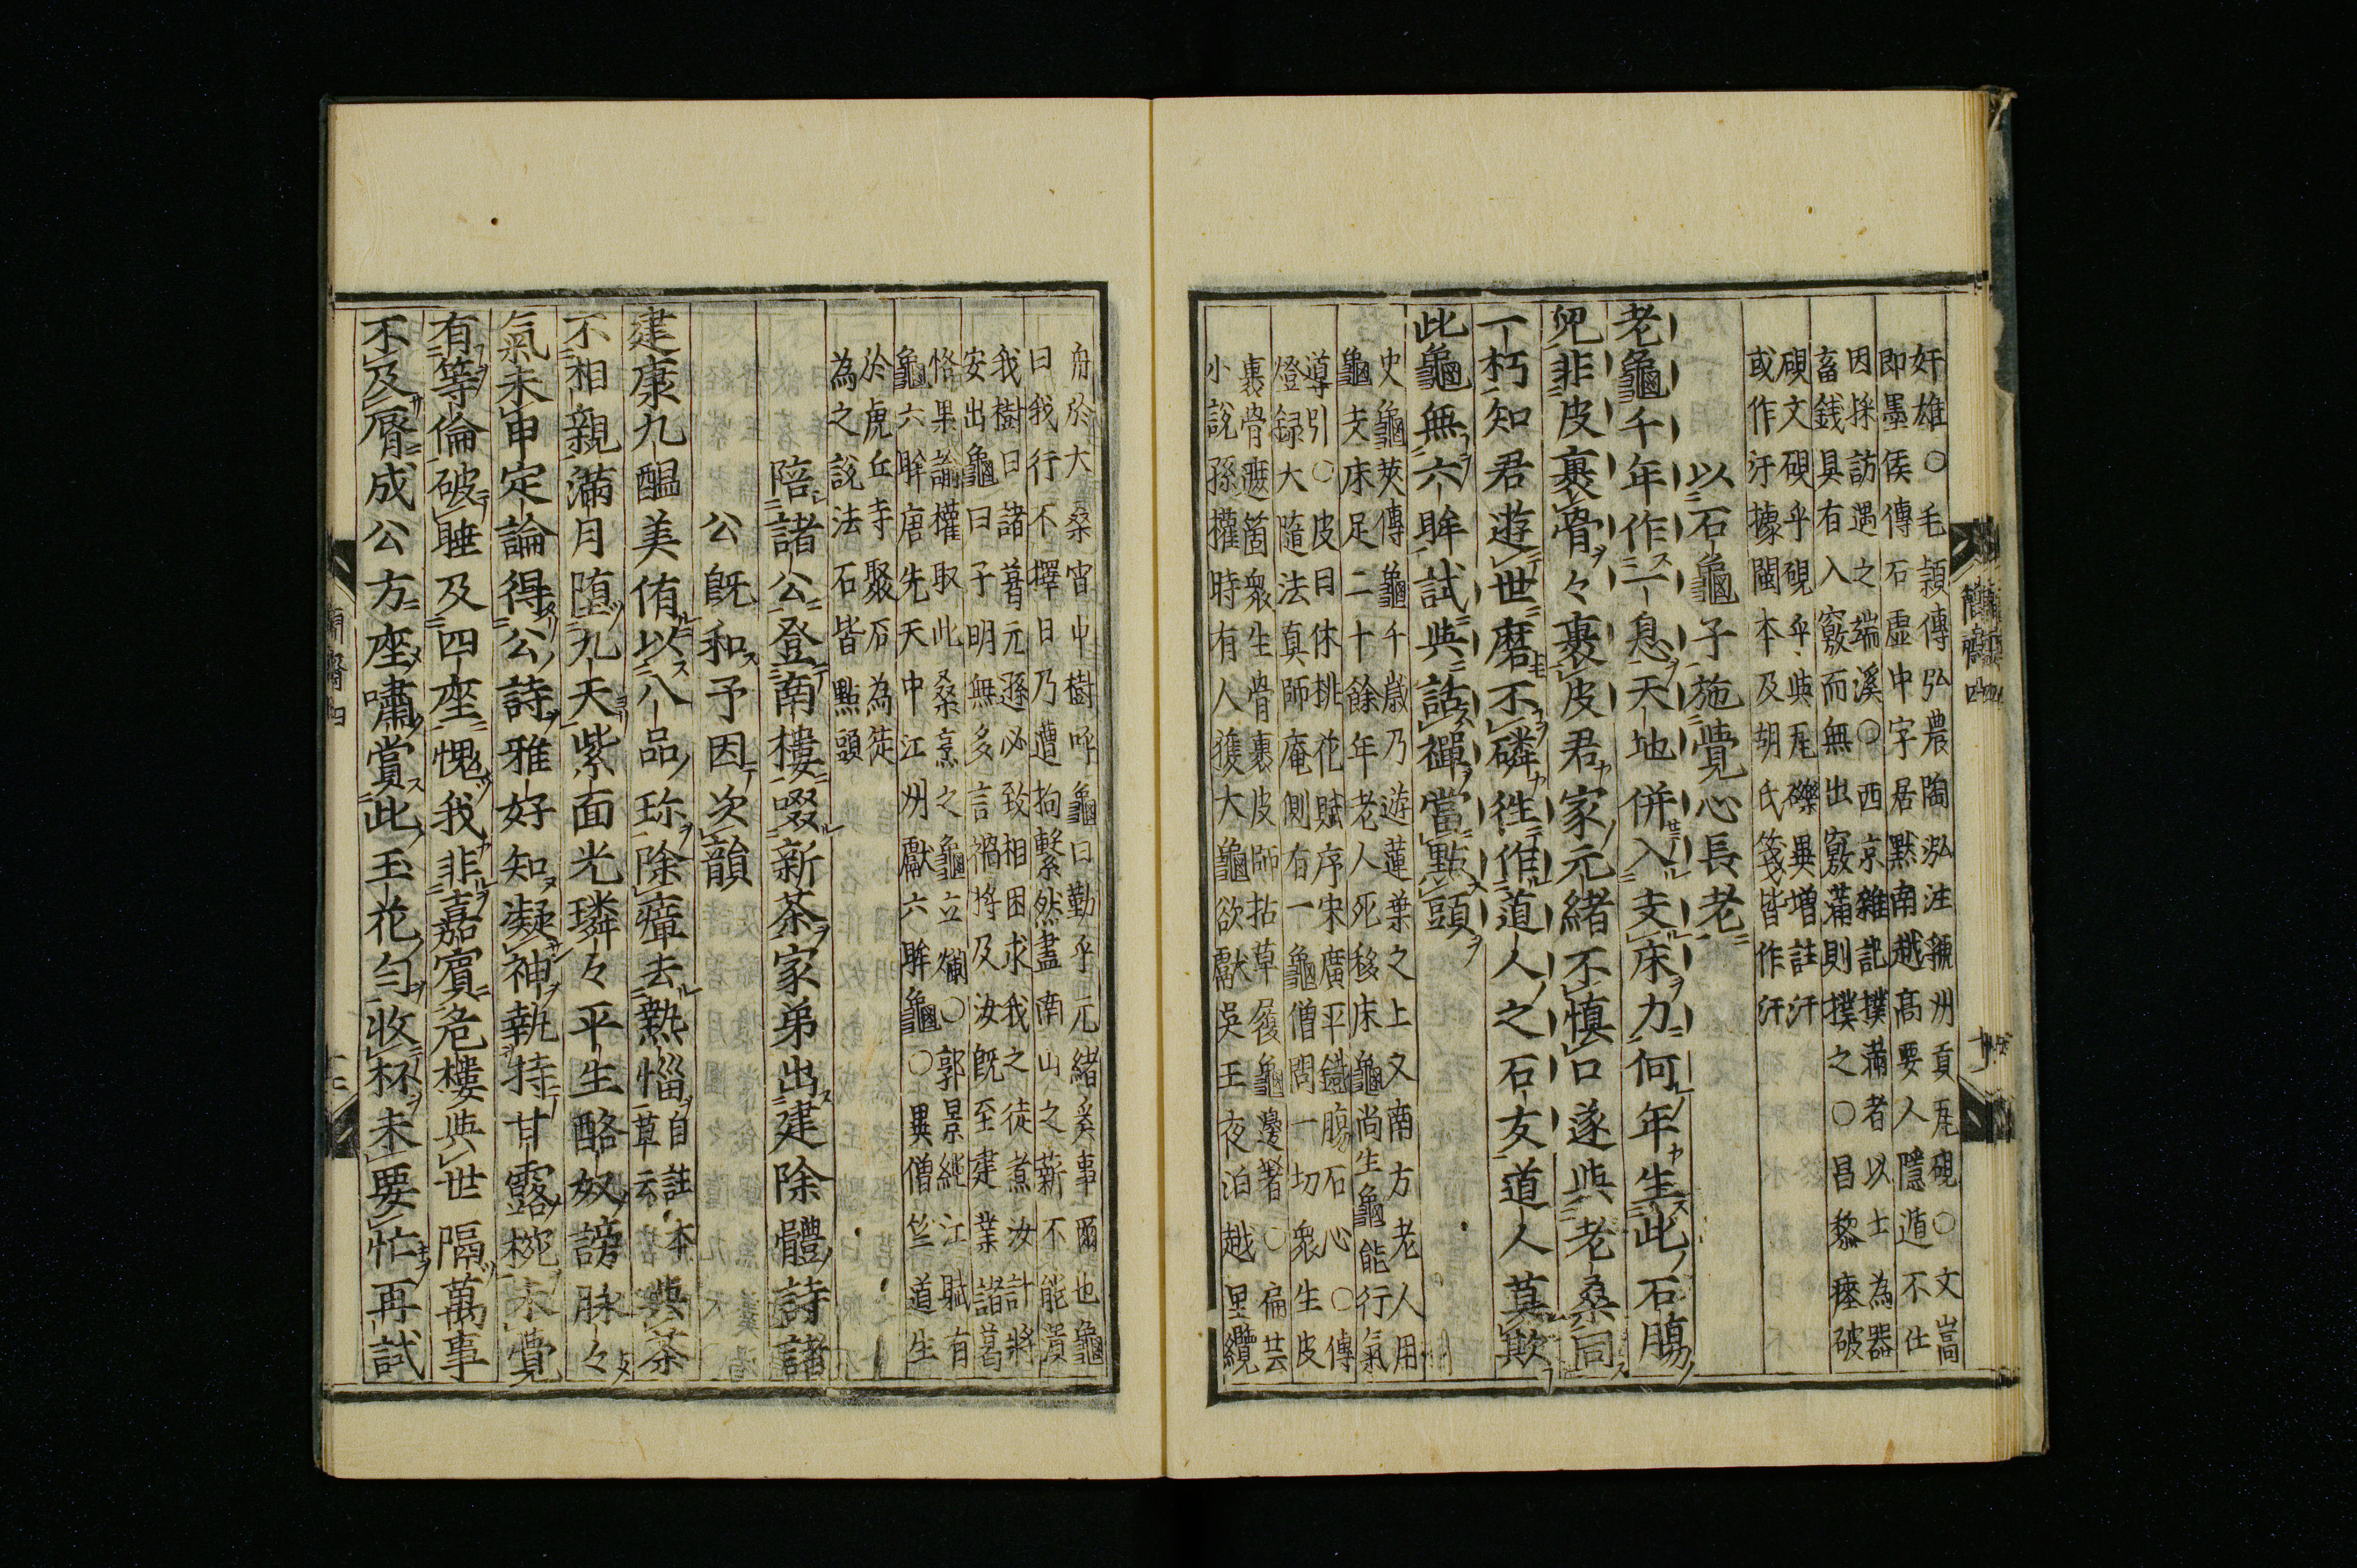 奸雄○毛頴傳弘農陶泓注虢州貢瓦硯○文嵩
即墨侯傳石虚中字居黙南越髙要人隱遁不仕
因採訪遇之端溪○西京雜記撲滿者以土為器
畜錢具有入竅而無出竅滿則撲之○昌黎瘞破
硯文硯乎硯乎與瓦礫異増註汙
或作汙據閩本及胡氏箋皆作汙
以石龜子施覺心長老
老龜千年作一息天地併入支床力何年生此石腸
兒非皮裹骨々裹皮君家元緒不慎口遂與老桑同
一朽知君遊世磨不磷徃作道人之石友道人莫欺
此龜無六眸試與詁禪當點頭
史龜莢傳龜千歳乃遊蓮葉之上又南方老人用
龜支床足二十餘年老人死移床龜尚生龜能行氣
導引○皮日休桃花賦序宋廣平鐵腸石心○傳
燈録大隨法真師庵側有一龜僧問一切衆生皮
裹骨遮箇衆生骨裹皮師拈草履龜邊著○扁芸
小說孫權時有人獲大龜欲獻吴王夜泊越里纜
舟於大桑宵中樹呼龜曰勤乎元緒奚事爾也龜
曰我行不擇日乃遭拘繫然盡南山之薪不能潰
我樹曰諸葛元遜必致相困求我之徒煮汝計將
安出龜曰子明無多言禍将及汝旣至建業諸葛
恪果諭權取此桑烹之龜立爛○郭景純江賦有
龜六眸唐先天中江州獻六眸龜○異僧竺道生
於虎丘寺聚石為徒
為之說法石皆點頭
陪諸公登南樓啜新茶家弟出建除體詩諸
公旣和予因次韻
建康九醞美侑以八品珎除瘴去熱惱自註本草云與茶
不相親滿月堕九天紫面光璘々平生酪奴謗脉々
氣未申定論得公詩雅好知凝神執持甘露椀未覺
有等倫破睡及四座愧我非嘉賓危樓與世隔萬事
不及脣成公方座嘯賞此玉花勻收杯未要忙再試
簡齋四
簡齋四